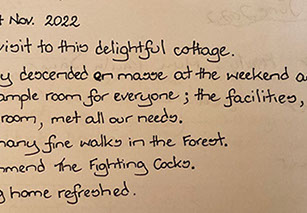 Nov. 2022
visit to this delightful cottage.
descended on masse at the weekend
ample room for everyone; the facilities,
room, met all our needs.
many fine walks in the Forest.
mmend The Fighting Cocks.
home refreshed.